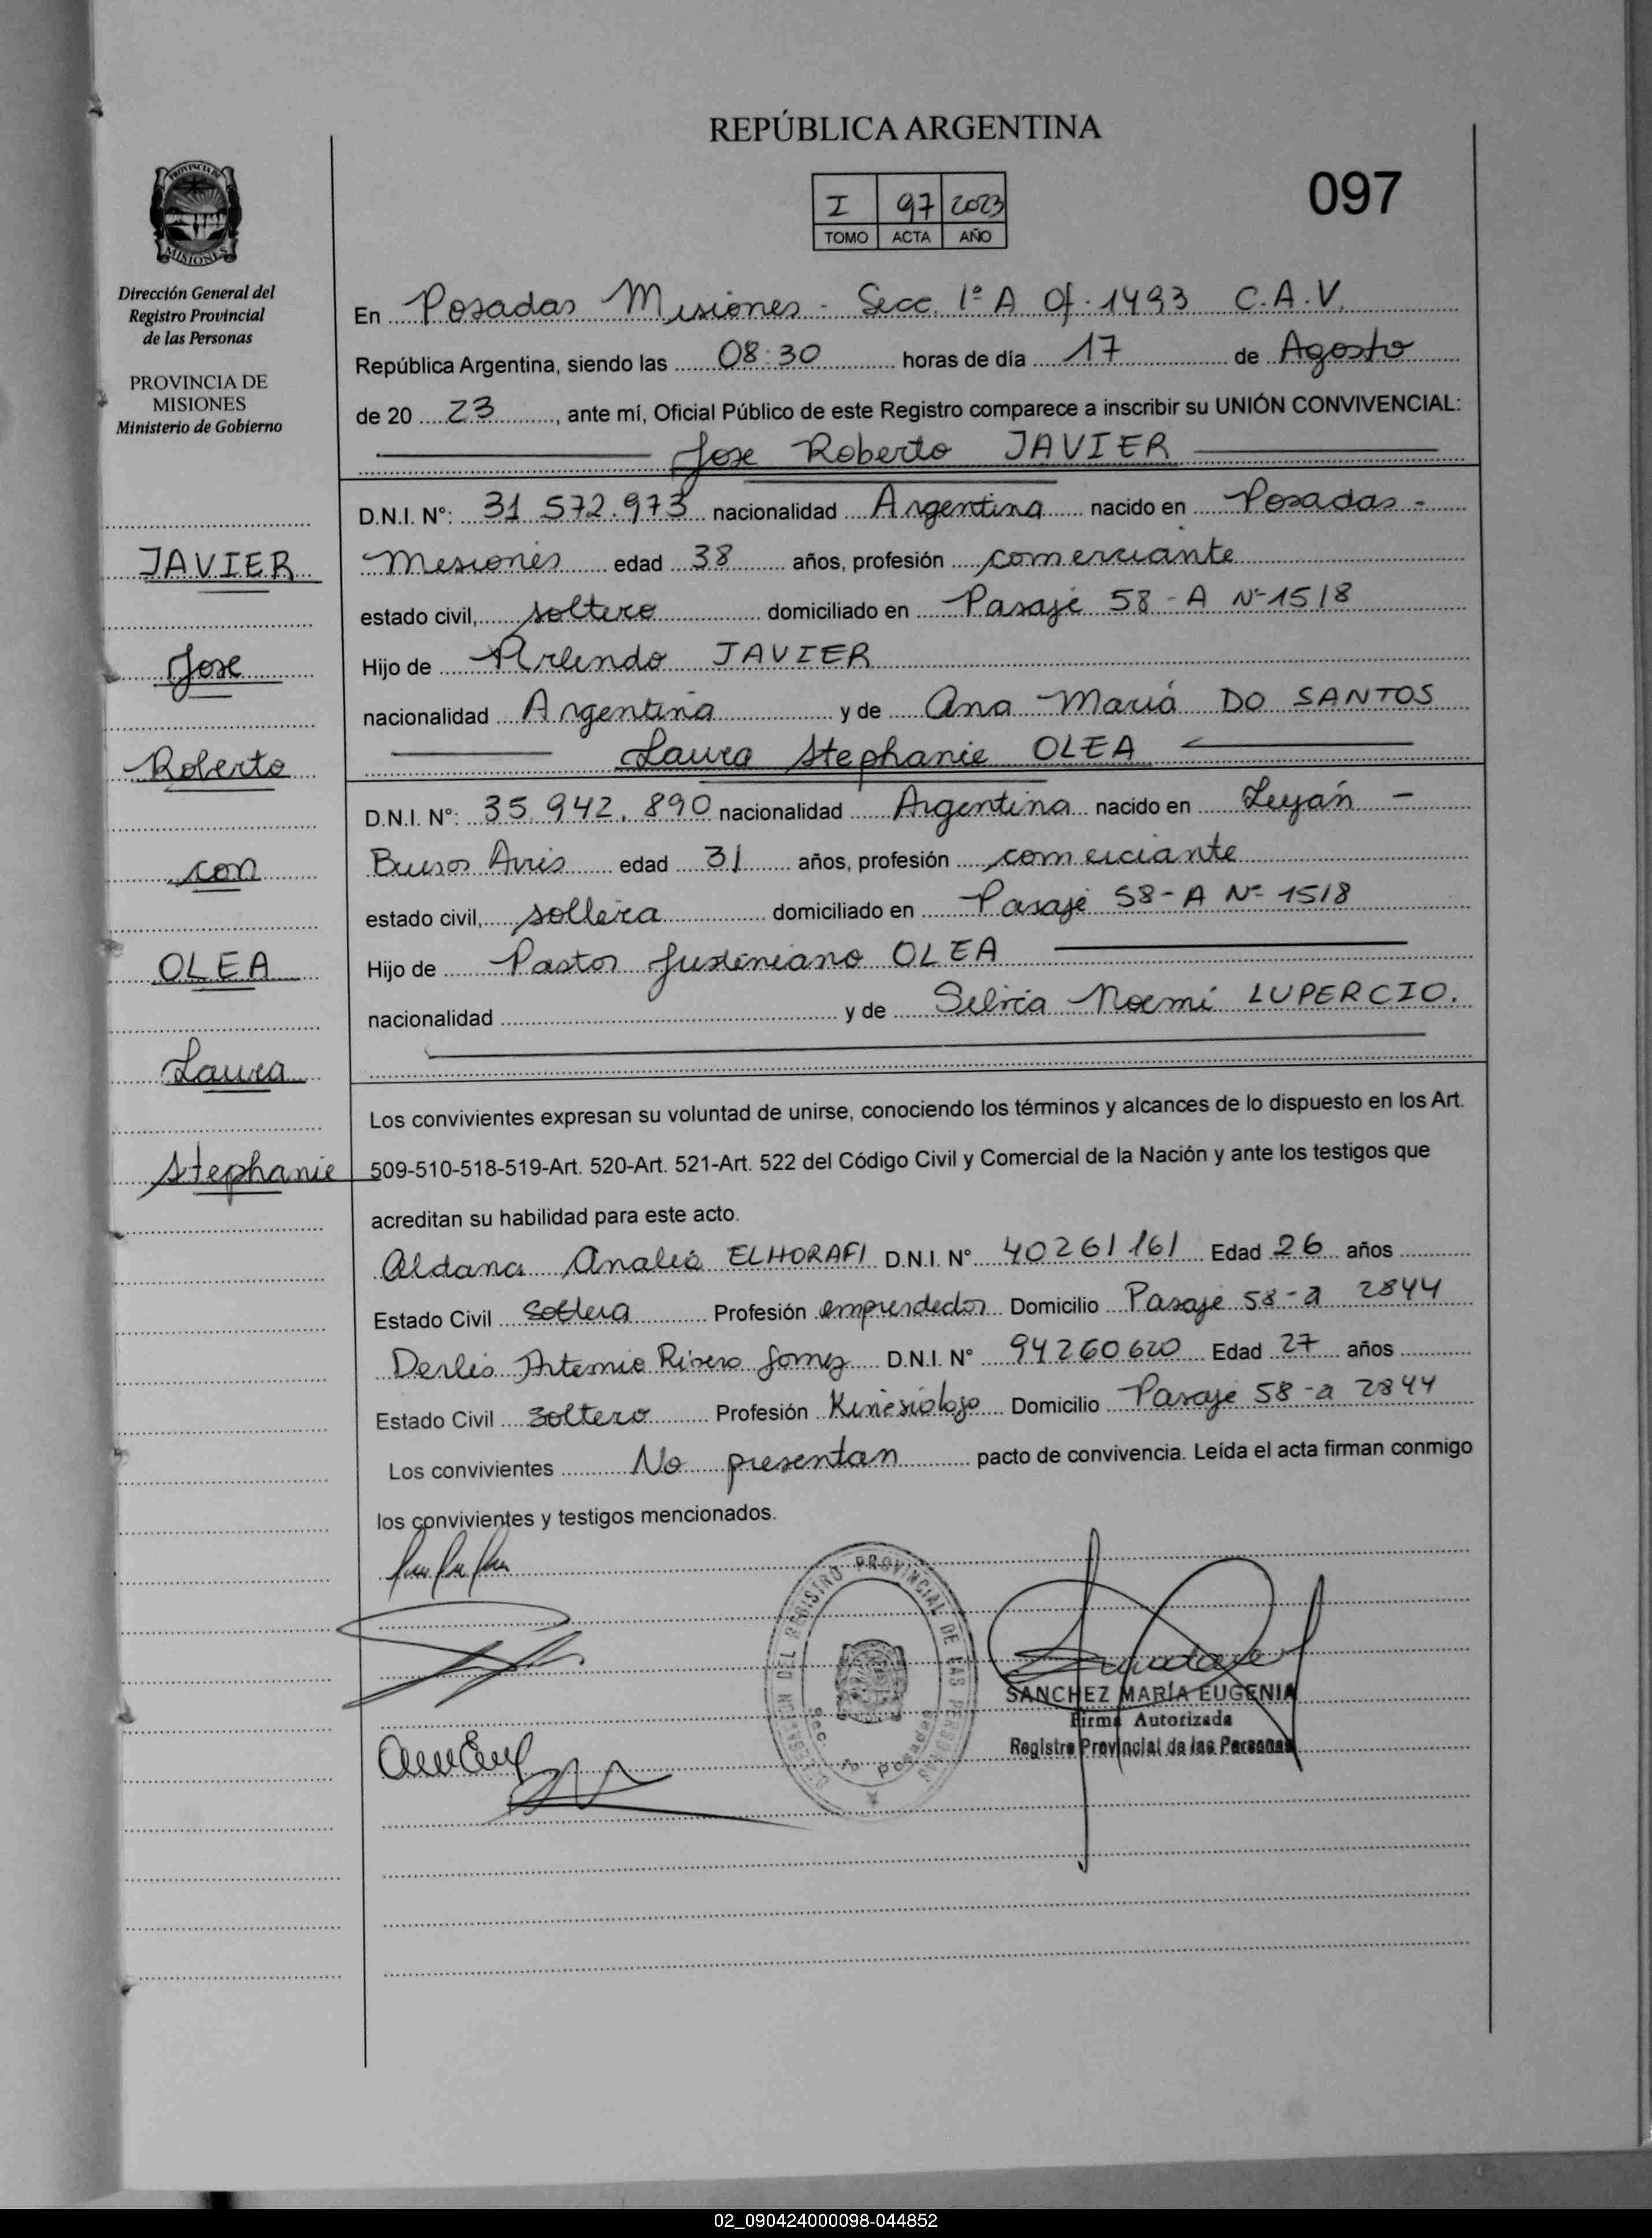 REPÚBLICA ARGENTINA
097
I 97 2023
TOMO ACTA AÑO
PROVINCIA DE
MISIONES
Dirección General del
Registro Provincial
de las Personas
PROVINCIA DE
MISIONES
Ministerio de Gobierno
JAVIER
Jose
Roberto
con
OLEA
Laura
Stephanie
En Posadas Misiones - Secc. 1º A Of. 1493 C.A.V.
República Argentina, siendo las 08:30 horas de día 17 de Agosto
de 20 23, ante mí, Oficial Público de este Registro comparece a inscribir su UNIÓN CONVIVENCIAL:
Jose Roberto JAVIER
D.N.I. Nº: 31 572.973 nacionalidad Argentina nacido en Posadas -
Misiones edad 38 años, profesión comerciante
estado civil, soltero domiciliado en Pasaje 58 - A Nº 1518
Hijo de Arlindo JAVIER
nacionalidad Argentina y de Ana María DO SANTOS
Laura Stephanie OLEA
D.N.I. Nº: 35.942.890 nacionalidad Argentina nacido en Luján -
Buenos Aires edad 31 años, profesión comerciante
estado civil, soltera domiciliado en Pasaje 58-A Nº 1518
Hijo de Pastor Justiniano OLEA
nacionalidad y de Silvia Noemí LUPERCIO.
Los convivientes expresan su voluntad de unirse, conociendo los términos y alcances de lo dispuesto en los Art.
509-510-518-519-Art. 520-Art. 521-Art. 522 del Código Civil y Comercial de la Nación y ante los testigos que
acreditan su habilidad para este acto.
Aldana Analía ELHORAFI D.N.I. Nº 40261161 Edad 26 años
Estado Civil Soltera Profesión emprendedor Domicilio Pasaje 58-a 2844
Derlis Artemio Rivero Gomez D.N.I. Nº 94260620 Edad 27 años
Estado Civil Soltero Profesión Kinesiologo Domicilio Pasaje 58-a 2844
Los convivientes No presentan pacto de convivencia. Leída el acta firman conmigo
los convivientes y testigos mencionados.
DELEGACION DEL REGISTRO PROVINCIAL DE LAS PERSONAS
Posadas
SANCHEZ MARÍA EUGENIA
Firma Autorizada
Registro Provincial de las Personas
02_090424000098-044852